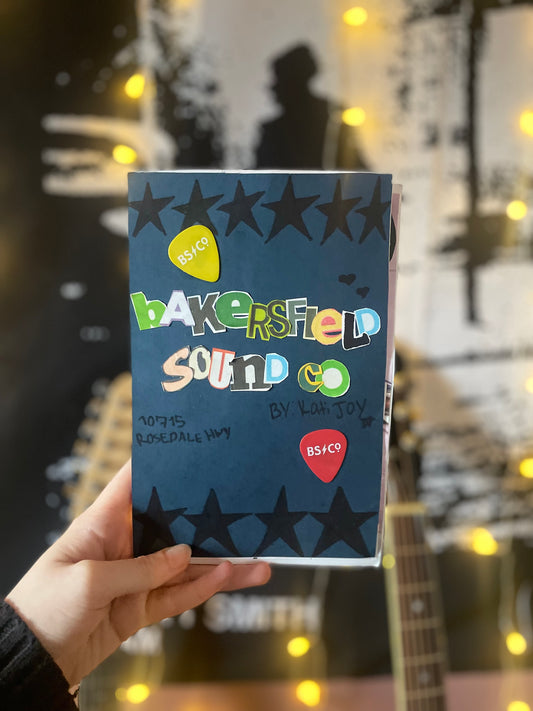 BS⚡Co
bAKeRSFIelD
SOUnD CO
BY: Kati JOY
10715
ROSEDALE HWY
BS⚡Co
SMITH